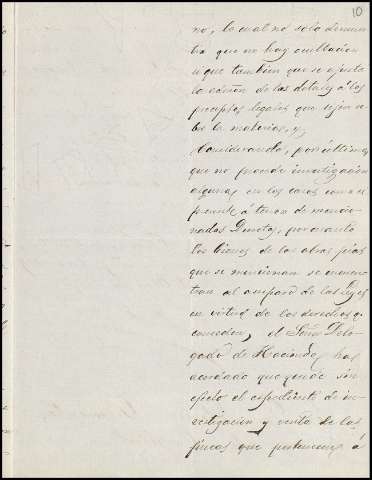 10
no, lo cual no solo demues
tra que no hay ocultacion
si que tambien que se ajusta
la accion de las dotales á los
preceptos legales que rigen so
bre la materia, y,
Considerando, por ultimo,
que no procede investigacion
alguna en los casos como el
presente, á tenor de mencio-
nados Decretos, por cuanto
los bienes de las obras pias
que se mencionan se encuen
tran al amparo de las leyes
en virtud de los derechos q.
conceden, el Señor Dele-
gado de Hacienda, ha
acordado que quede sin
efecto el espediente de in-
vestigacion y venta de las
fincas que pertenecen á